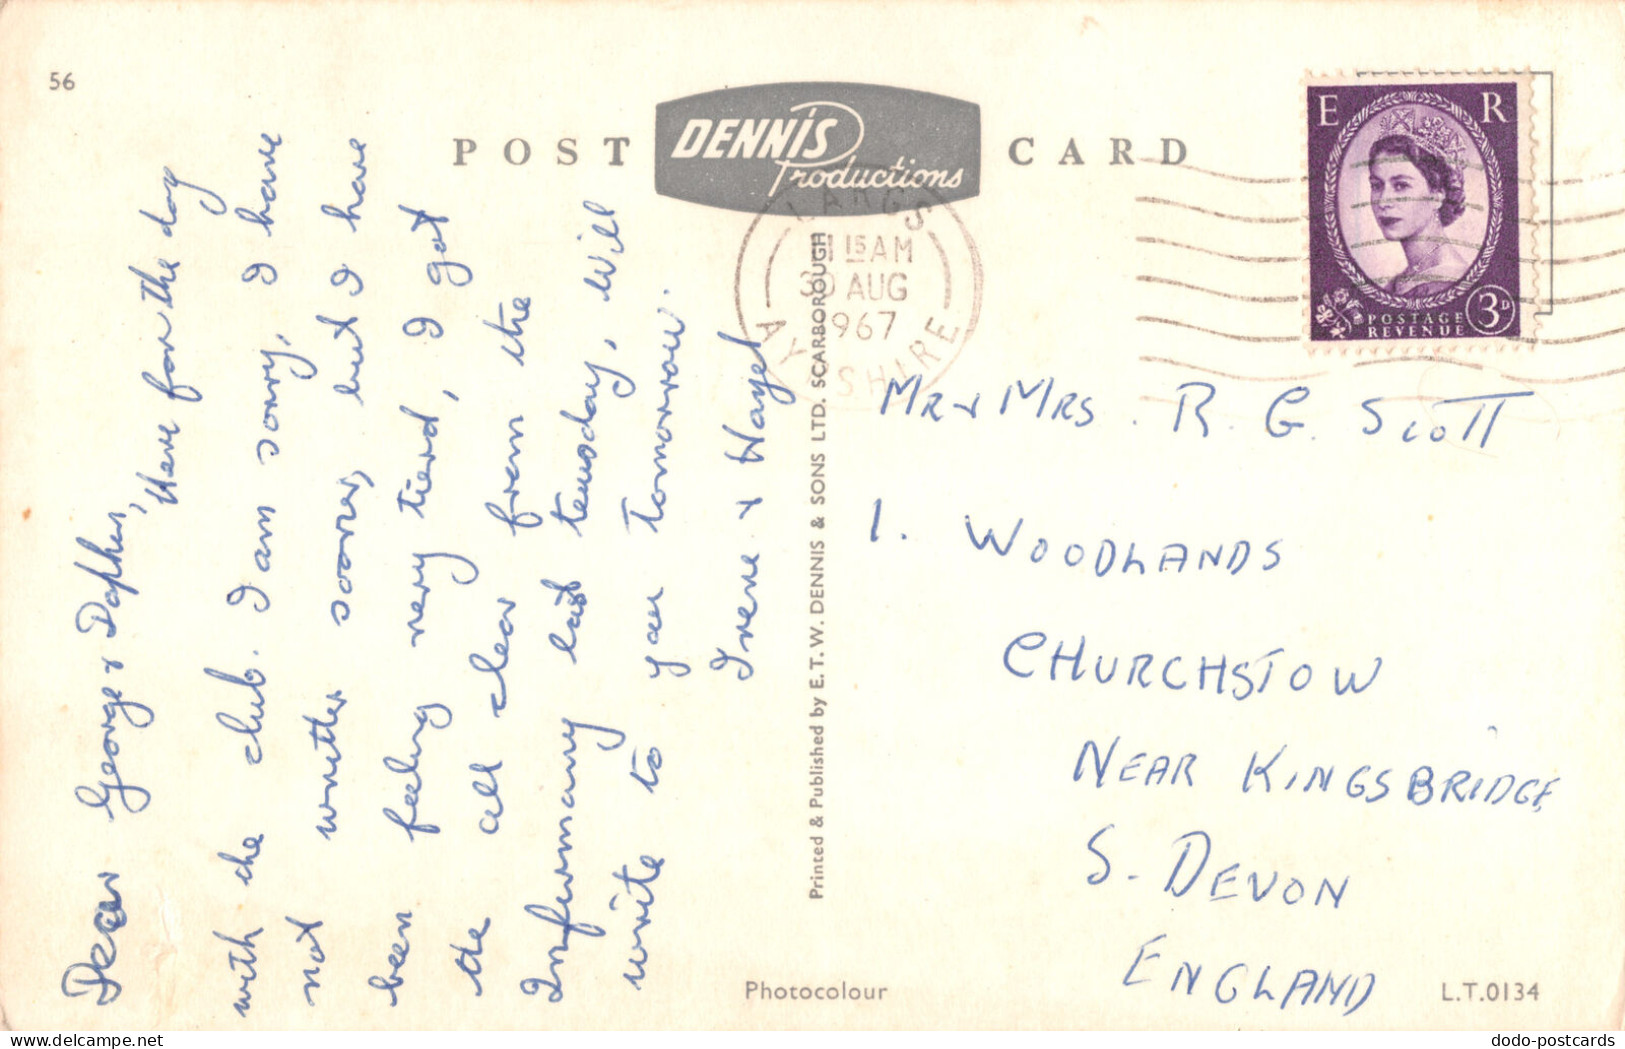 56
POST CARD
DENNIS
Productions
LARGS
11 15 AM
30 AUG
1967
AYRSHIRE
E R
POSTAGE
REVENUE
3D
Dear George & Daphen,
Here for the day
with the club. I am sorry, I have
not writter sooner, but I have
been feeling very tierd, I got
the all clear from the
Infirmary last teusday, will
write to you Tomorrow.
Irene & Hazel
Printed & Published by E.T.W. DENNIS & SONS LTD. SCARBOROUGH
MR & MRS. R. G. SCOTT
1. WOODLANDS
CHURCHSTOW
NEAR KINGSBRIDGE
S. DEVON
ENGLAND
Photocolour
L.T.0134
dodo-postcards